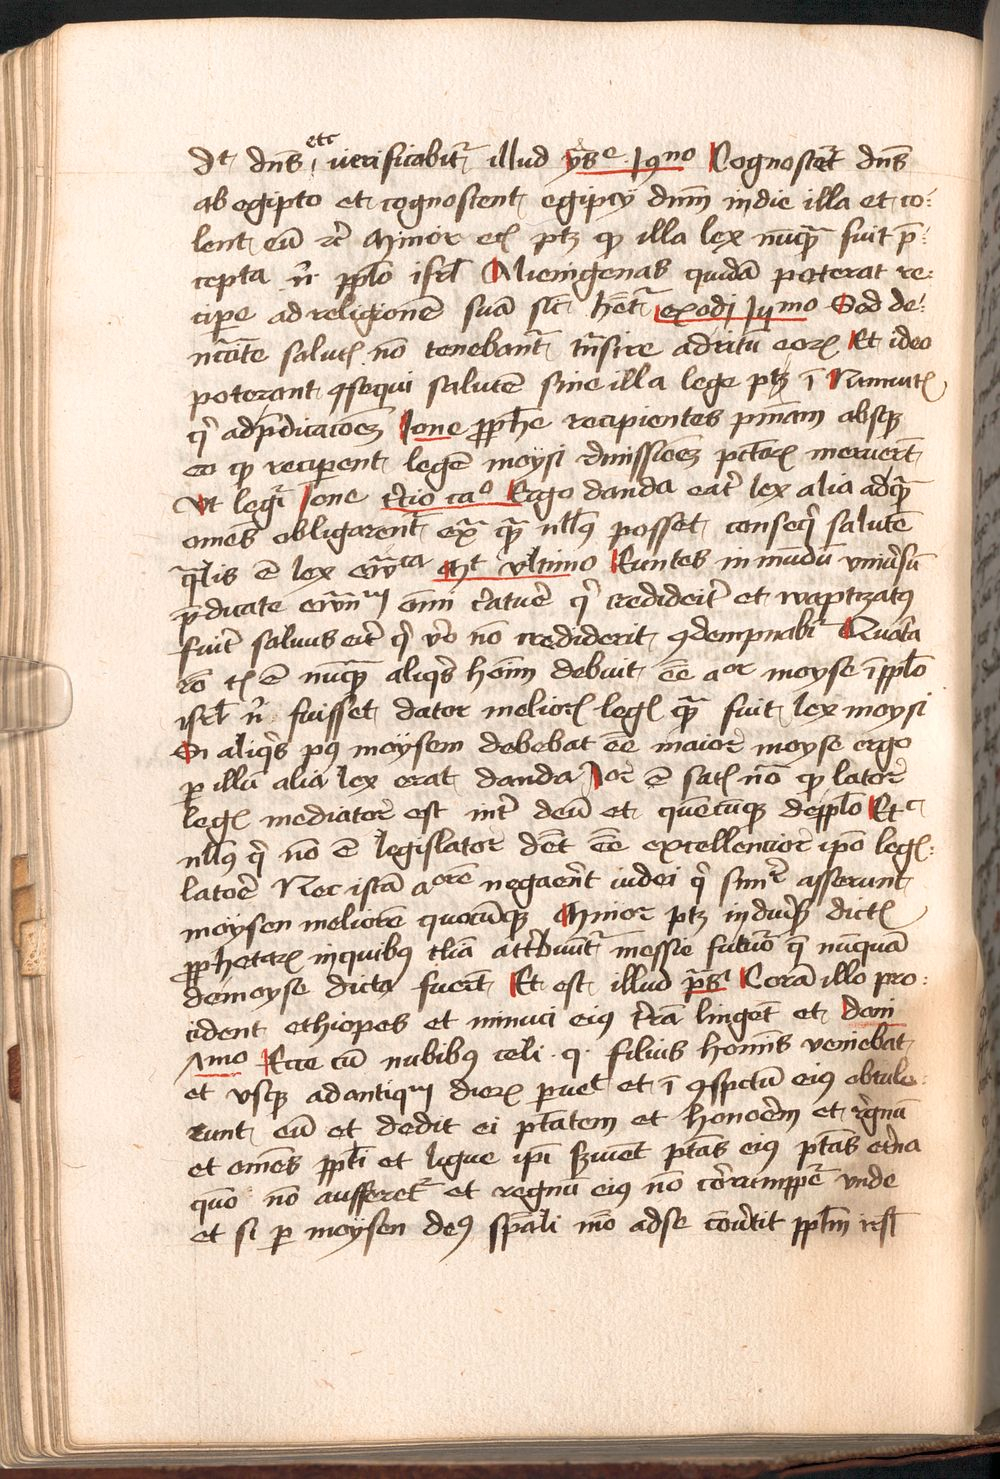 dt dns etc verificabitr illud yse 19no Cognoscet dns
ab egipto et cognoscent egipcij dnm in die illa et co:
lent eu rc Minor ptz qp illa lex nuqa fuit p:
cepta n pplo isrl Alienigenas quida poterat re:
cipe ad religione sua sic hetr exodi 12mo Sed de
salut no tenebant tnsire ad ritu eorz Et ideo
poterant 9sequi salute sine illa lege ptz i Niniuit
q ad pdicacoez Jone pphe recipientes pniam absqz
eo qp reciperent lege moysi rmissioez pctorz meruert
Vt legr Jone tcio cao Ergo danda erat lex alia ad qa
omes obligarent ex qa null9 posset conseq salute
qlis e lex euaca Mt vltimo Euntes in mudu vniusu
pdicate omi creature q credideit et waptizat9
fuit saluus eit q vo no crediderit 9dempnabr Quarta
ro e nuqa aliqs hoim debuit ee aor moyse i pplo
isrl n fuisset dator melior leg qa fuit lex moysi
Si aliqs p9 moysem debebat ee maior moyse ergo
p illa alia lex erat danda Jor e sat no qp lator
leg mediator est int deu et quecuqz de pplo Et
null9 q no e legislator det ee excellencior ipo leg:
latore Nec ista aore negaret iudei q simr asserunt
moysen meliore quocuqz Minor ptz in duis dict
pphetarz in quibus attbuutr messie futuro q nuquam
de moyse dicta fuert Et est illud ps Cora illo pro:
cident ethiopes et inimici eius tra linget et dani
7mo Ecce cu nubibus celi q filius homis veniebat
et vsqz ad antiqum dierz puet et i 9spctu eius obtule:
runt eu et dedit ei ptatem et honorem et rgnu
et omes ppli et ligue ipi suient ptas eius ptas etna
que no aufferetr et regnu eius no corrumppetr vnde
et si p moysen deus spali mo ad se couertit pplm isrl